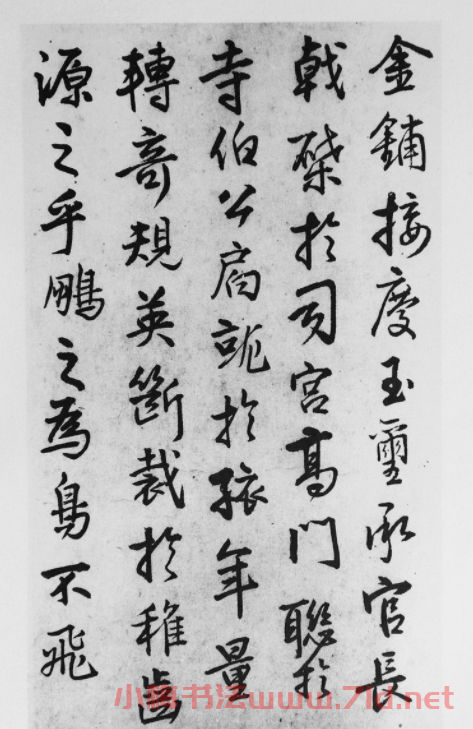 金鋪接慶玉璽承官長
戟棨於司宮高門聯於
寺伯公局説於孩年量
轉奇規英斷裁於稚齒
源之乎鵬之為鳥不飛
小楷书法www.71d.net